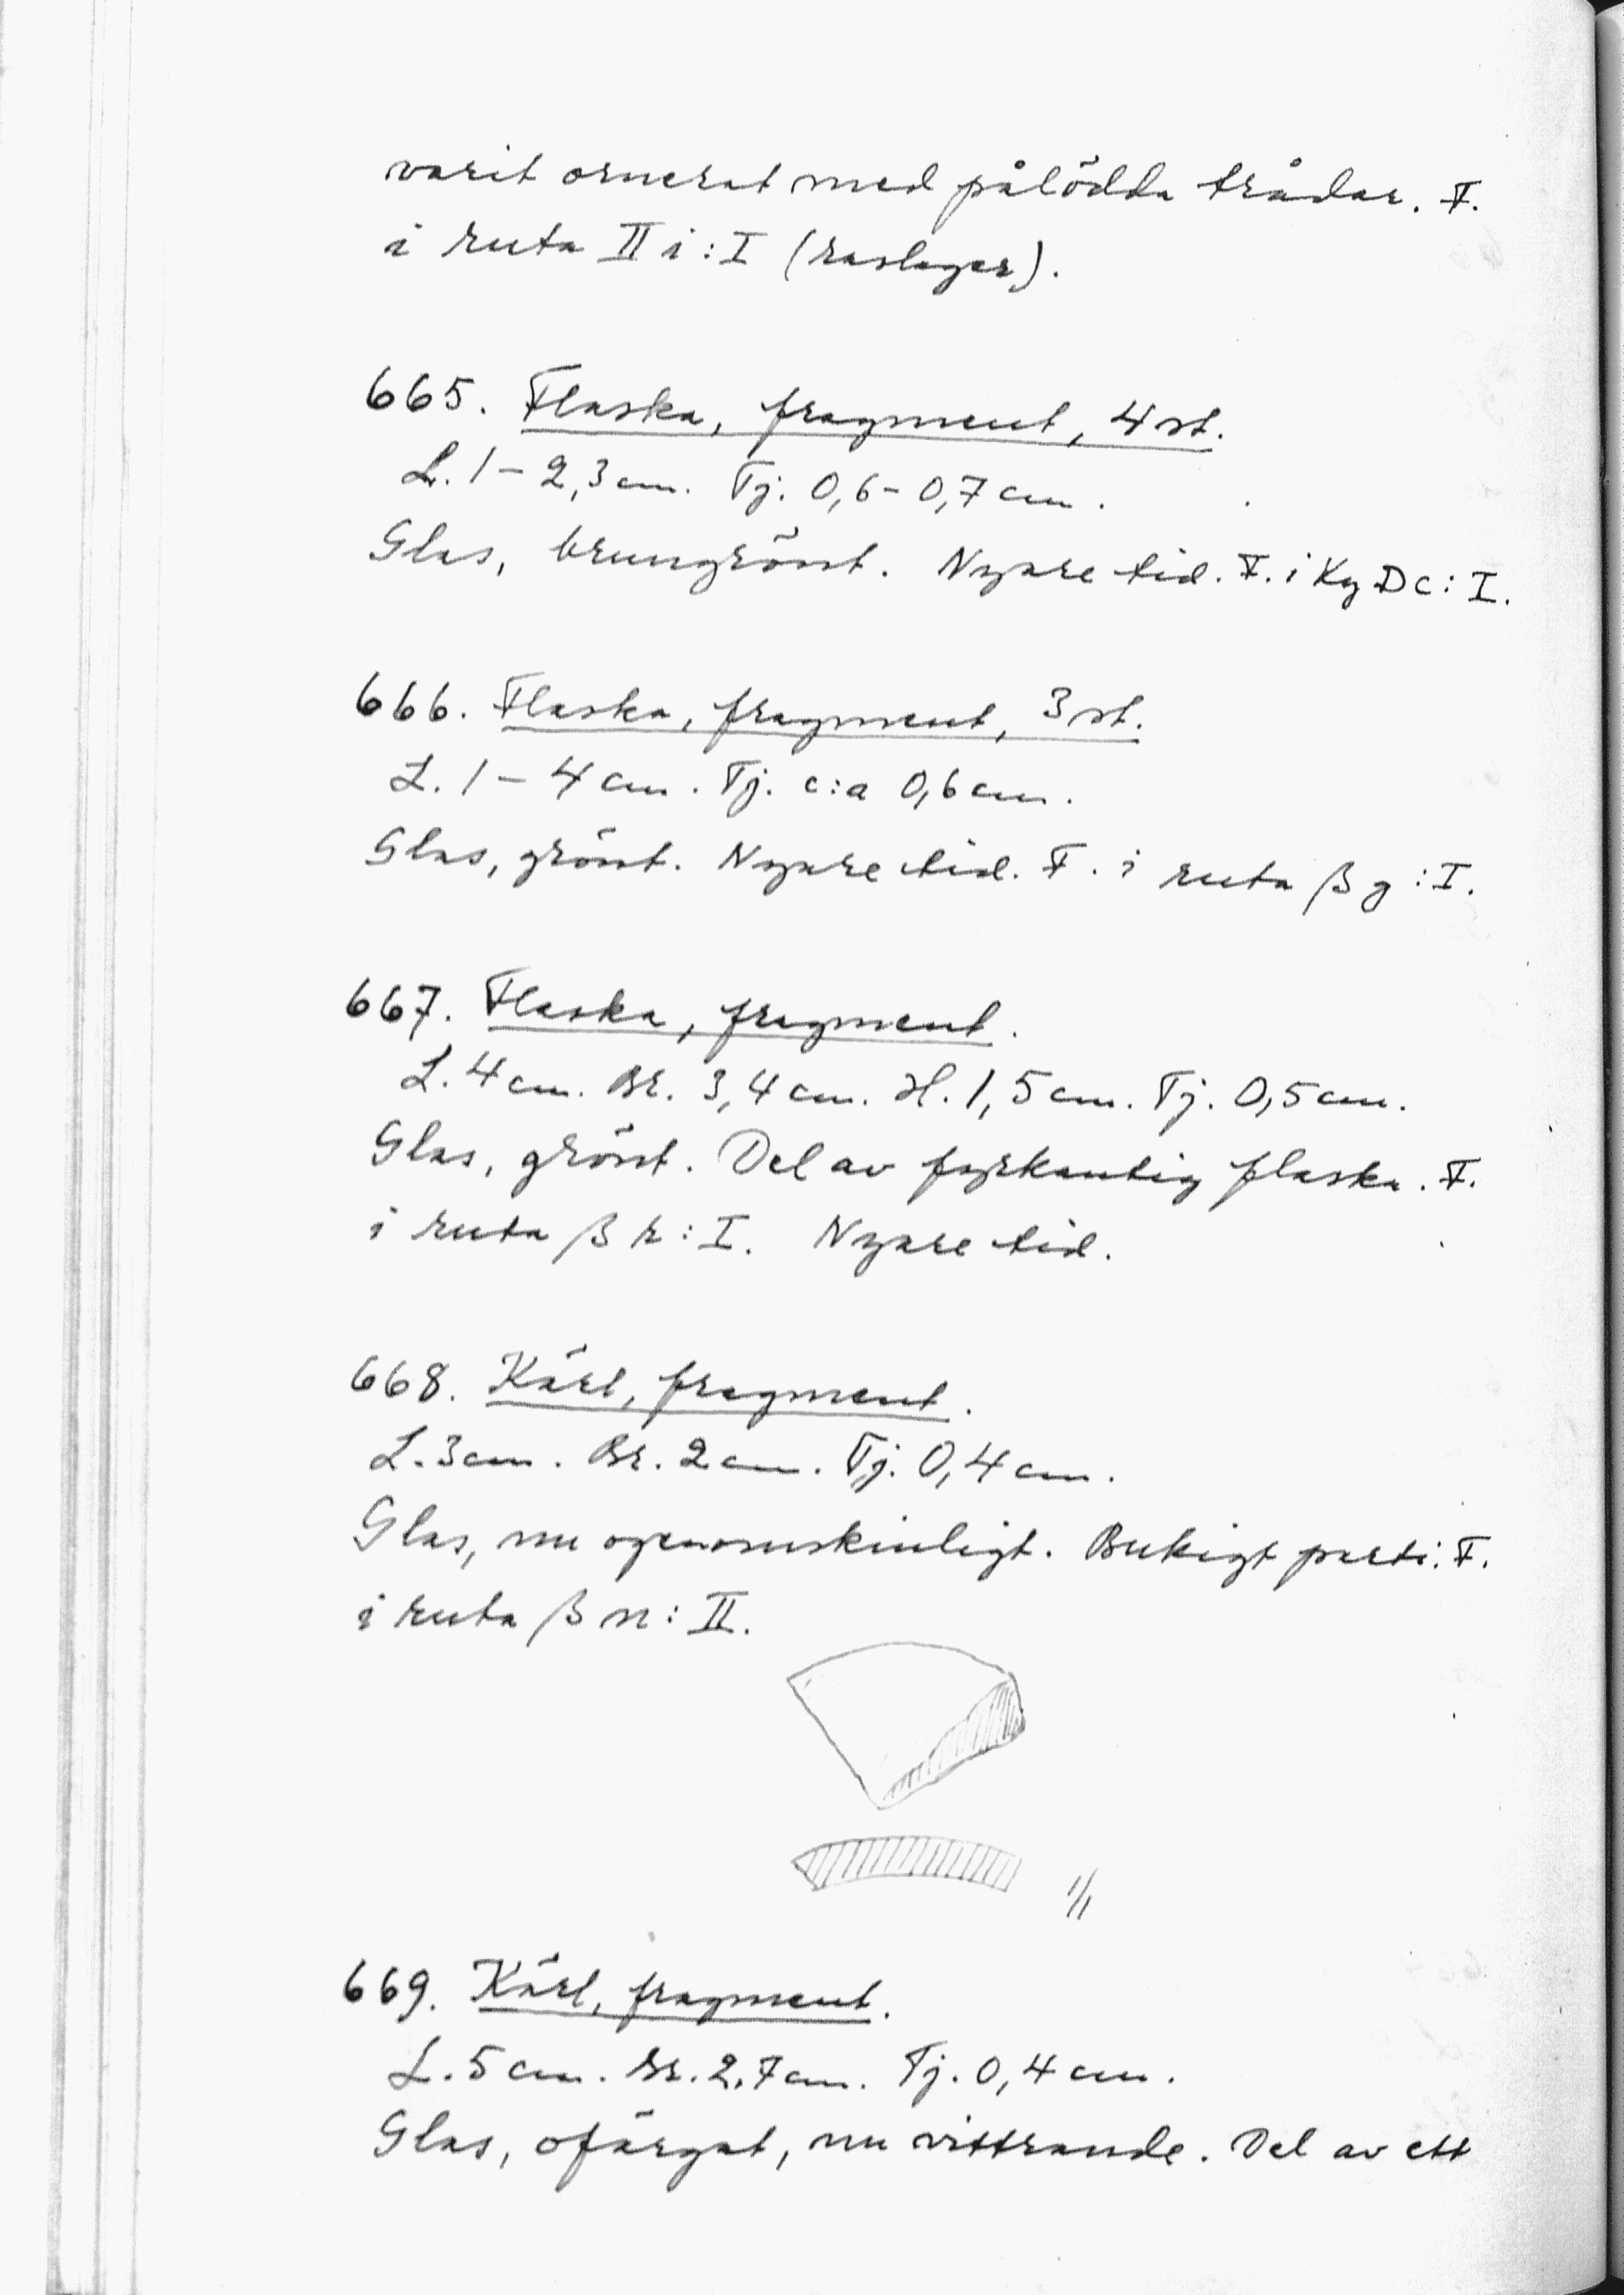 varit ornerat med pålödda trådar. F.
i ruta II i : I (raslager).
665. Flaska, fragment, 4 st.
L. 1 – 2,3 cm. Tj. 0,6 – 0,7 cm.
Glas, brungrönt. Nyare tid. F. i Kg D c : I.
666. Flaska, fragment, 3 st.
L. 1 – 4 cm. Tj. c:a 0,6 cm.
Glas, grönt. Nyare tid. F. i ruta β g : I.
667. Flaska, fragment.
L. 4 cm. Br. 3,4 cm. H. 1,5 cm. Tj. 0,5 cm.
Glas, grönt. Del av fyrkantig flaska. F.
i ruta β : I. Nyare tid.
668. Kärl, fragment.
L. 3 cm. Br. 2 cm. Tj. 0,4 cm.
Glas, nu ogenomskinligt. Bukigt parti. F.
i ruta β n : II.
1/1
669. Kärl, fragment.
L. 5 cm. Br. 2,7 cm. Tj. 0,4 cm.
Glas, ofärgat, nu vittrande. Del av ett